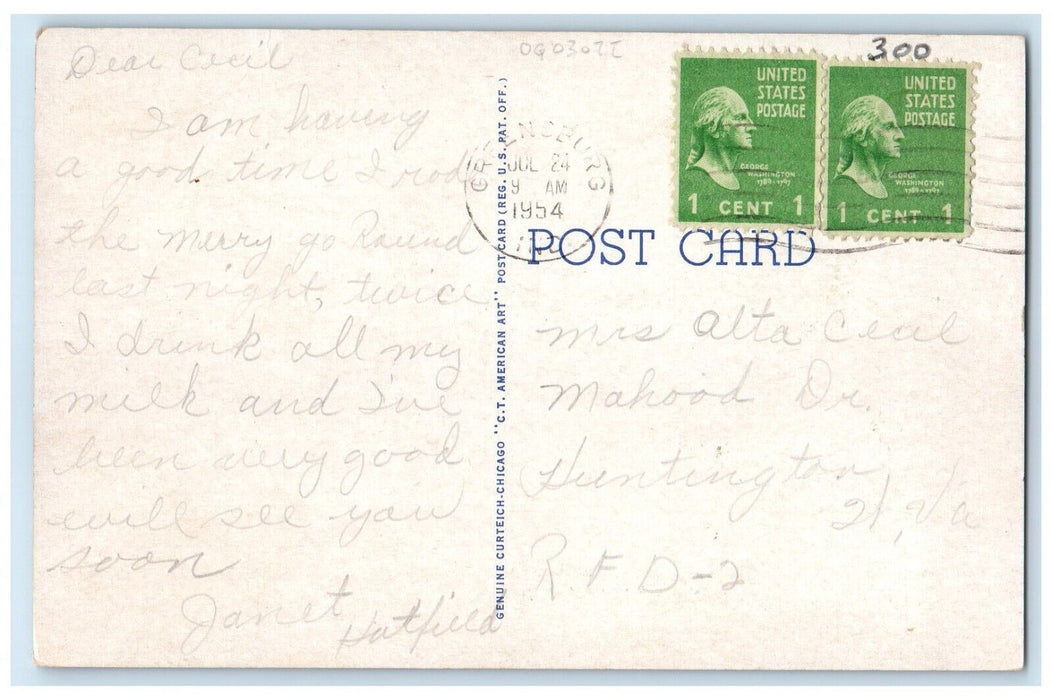 Dear Cecil
I am having
a good time I rod
the merry go Round
last night, twice
I drink all my
milk and I've
been very good
will see you
soon
Janet Hatfield
GENUINE CURTEICH-CHICAGO "C.T. AMERICAN ART" POST CARD (REG. U.S. PAT. OFF.)
300
GREENSBURG
JUL 24
9 AM
1954
IND.
UNITED STATES POSTAGE
GEORGE WASHINGTON
1789-1797
1 CENT 1
UNITED STATES POSTAGE
GEORGE WASHINGTON
1789-1797
1 CENT 1
POST CARD
Mrs Alta Cecil
Mahood Dr.
Huntington
W, Va
R.F.D-2